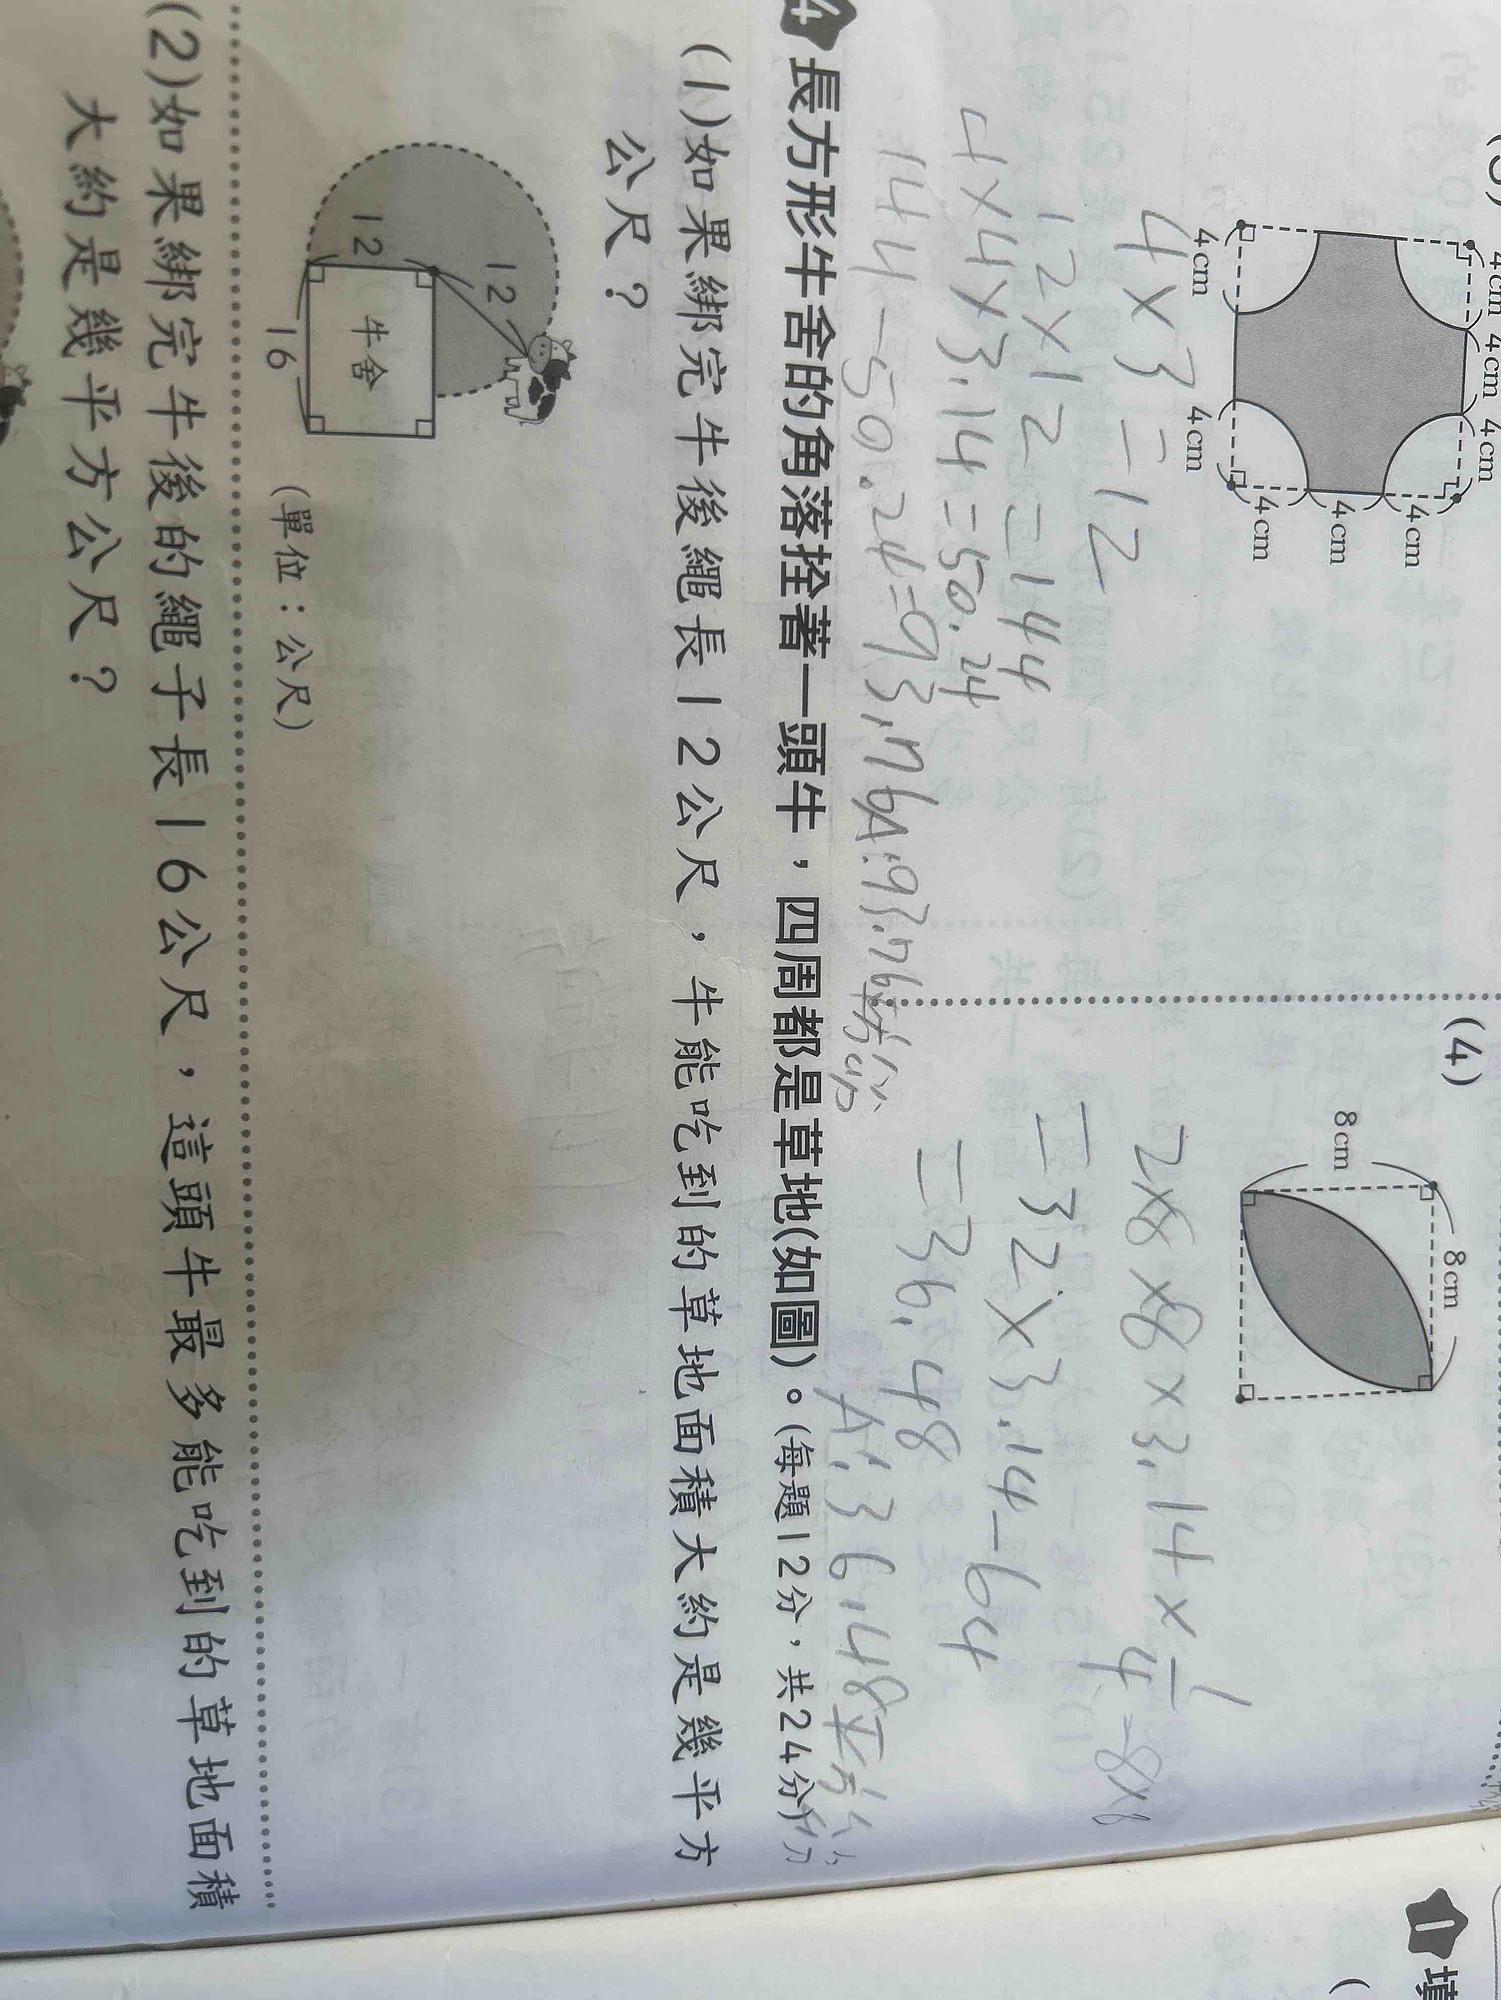 4cm
4cm
4cm
4cm
4cm
4cm
4cm
4cm
4×3=12
12×12=144
4×4×3.14=50.24
144-50.24=93.76A:93.76
(4)
8cm
8cm
2×8×8×3.14×1/4-8×8
=32×3.14-64
=36.48
A:36.48平方公分
4 長方形牛舍的角落拴著一頭牛,四周都是草地(如圖)。(每題12分,共24分)
(1)如果綁完牛後繩長12公尺,牛能吃到的草地面積大約是幾平方
公尺?
12
12
牛舍
16
(單位:公尺)
(2)如果綁完牛後的繩子長16公尺,這頭牛最多能吃到的草地面積
大約是幾平方公尺?
1 填
(